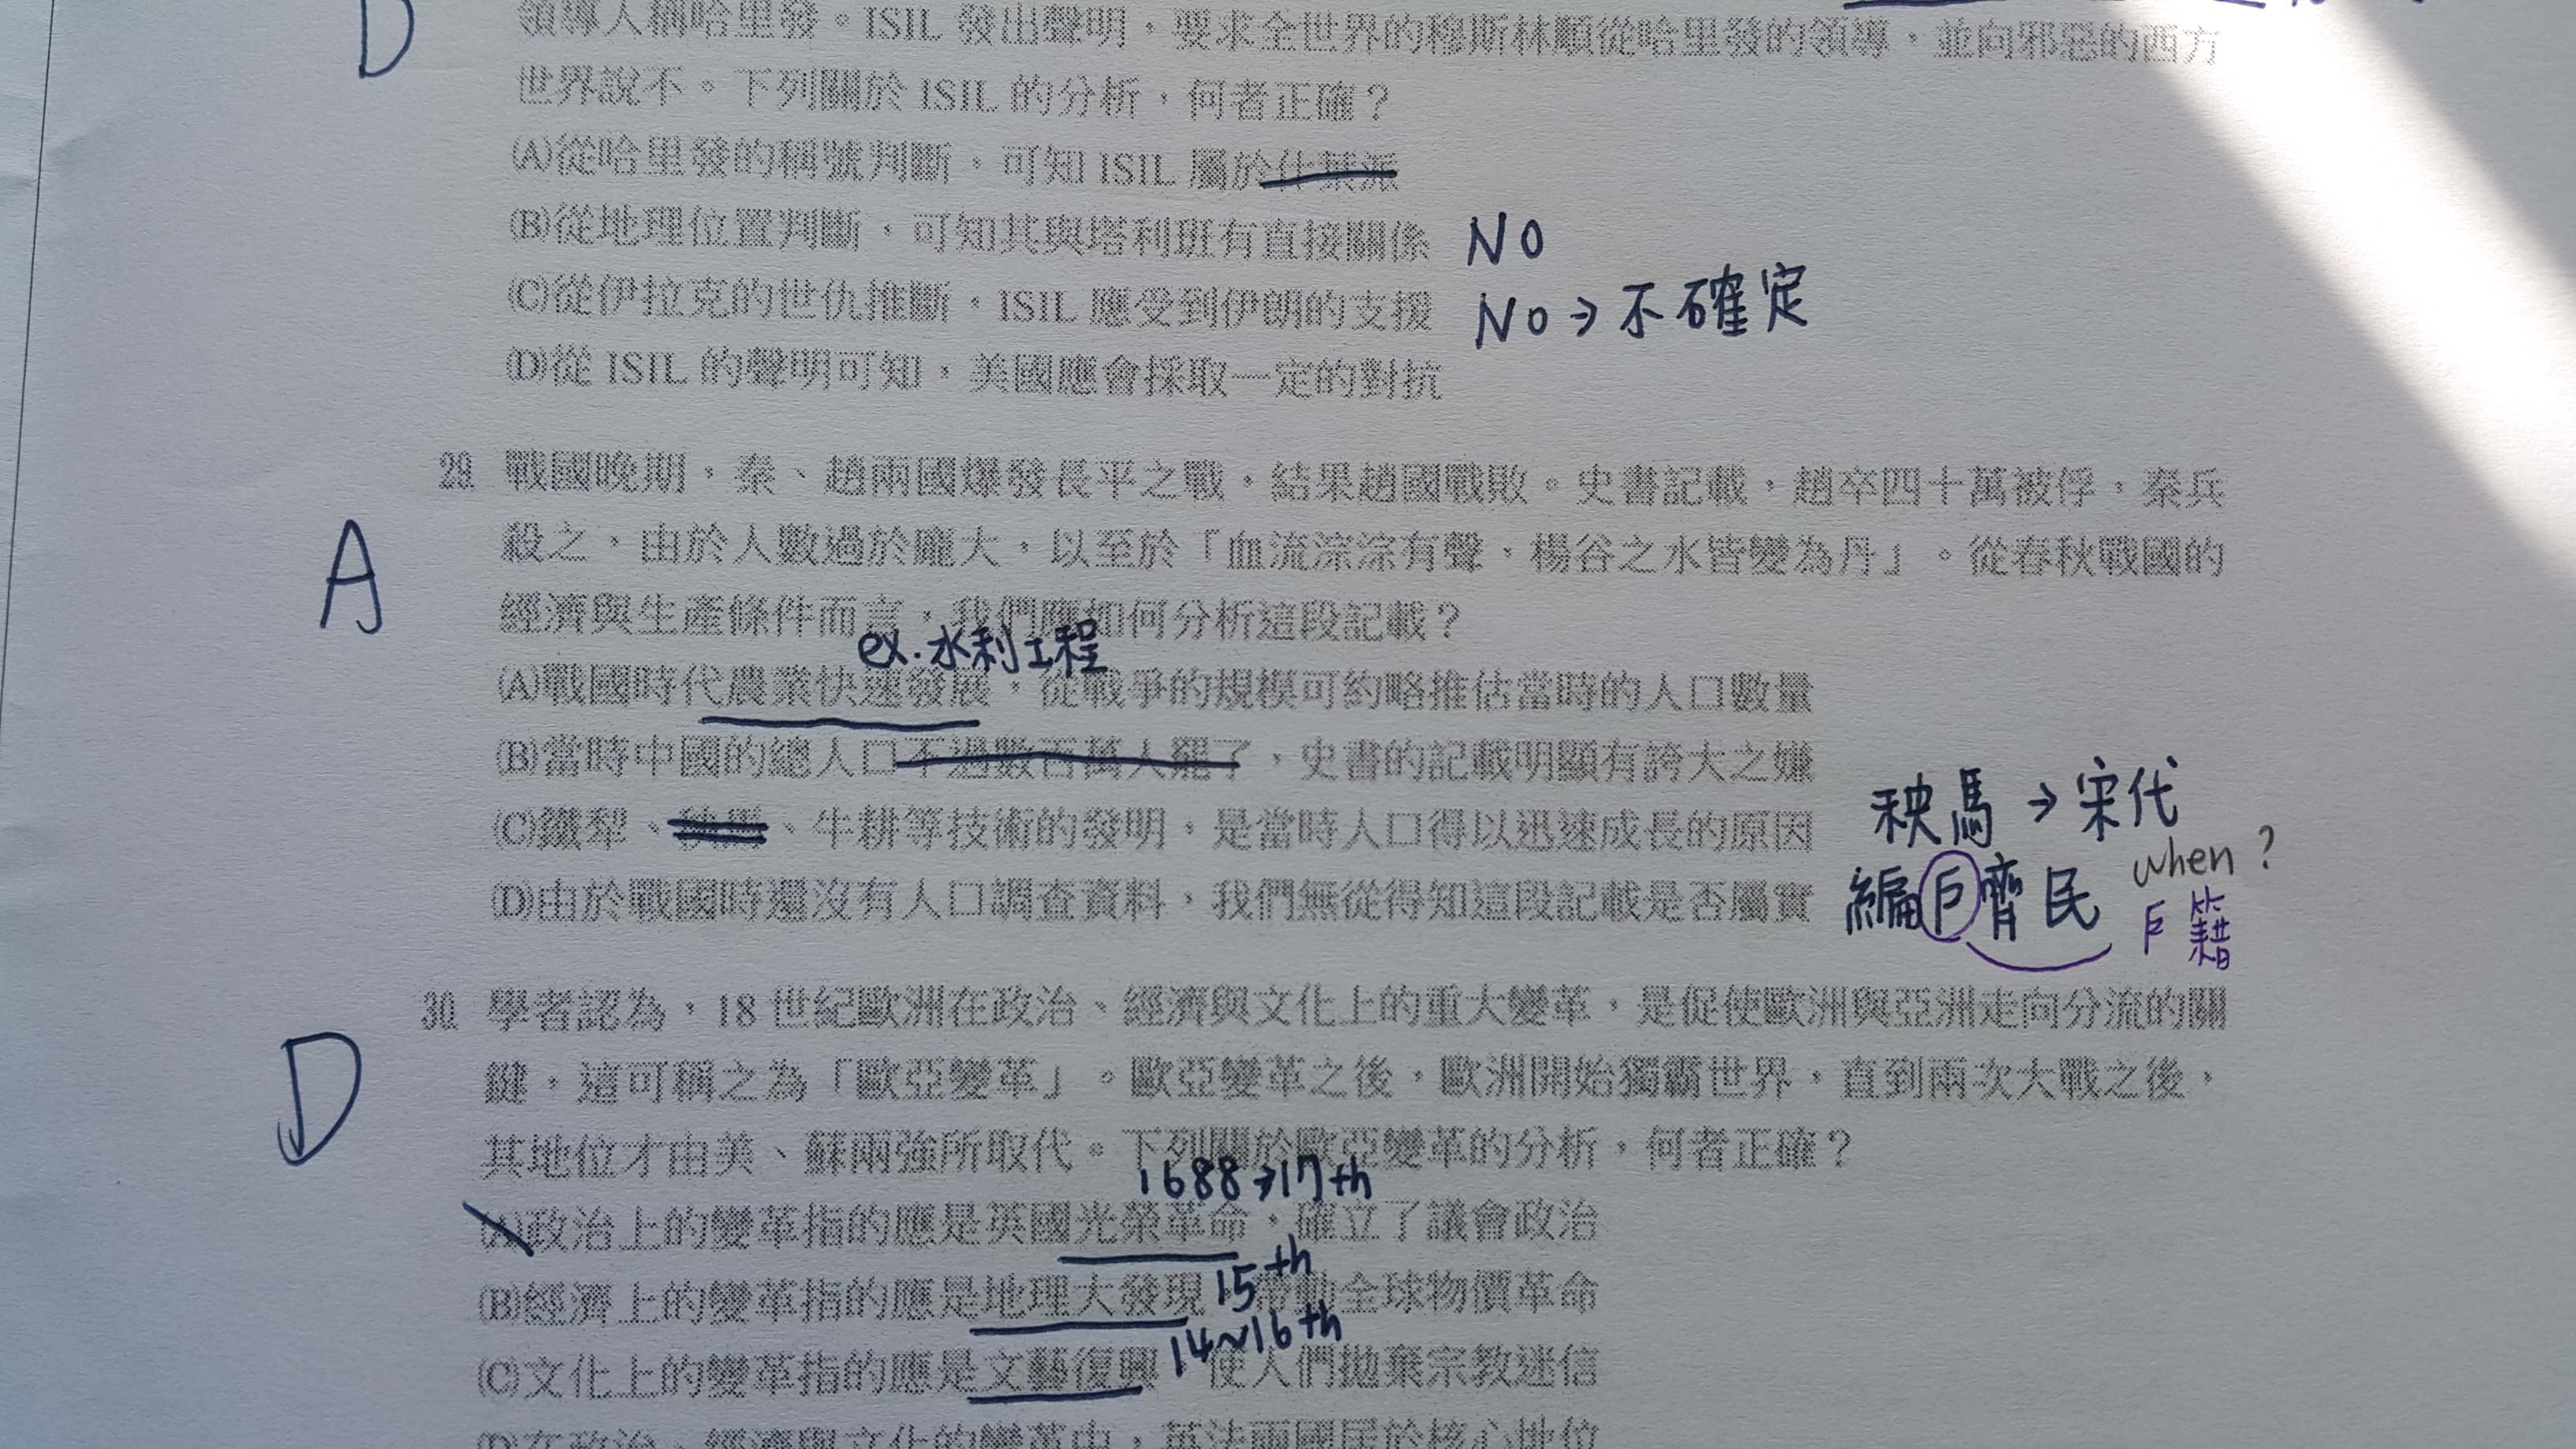 D
領導人稱哈里發。ISIL 發出聲明，要求全世界的穆斯林順從哈里發的領導，並向邪惡的西方
世界說不。下列關於 ISIL 的分析，何者正確？
(A)從哈里發的稱號判斷，可知 ISIL 屬於什葉派
(B)從地理位置判斷，可知其與塔利班有直接關係 NO
(C)從伊拉克的世仇推斷，ISIL 應受到伊朗的支援 NO→不確定
(D)從 ISIL 的聲明可知，美國應會採取一定的對抗
29. 戰國晚期，秦、趙兩國爆發長平之戰，結果趙國戰敗。史書記載，趙卒四十萬被俘，秦兵
A 殺之，由於人數過於龐大，以至於「血流淙淙有聲，楊谷之水皆變為丹」。從春秋戰國的
經濟與生產條件而言，我們應如何分析這段記載？
ex.水利工程
(A)戰國時代農業快速發展，從戰爭的規模可約略推估當時的人口數量
(B)當時中國的總人口不過數百萬人罷了，史書的記載明顯有誇大之嫌
(C)鐵犁、秧馬、牛耕等技術的發明，是當時人口得以迅速成長的原因 秧馬→宋代
(D)由於戰國時還沒有人口調查資料，我們無從得知這段記載是否屬實 編戶齊民 when?
戶籍
30. 學者認為，18 世紀歐洲在政治、經濟與文化上的重大變革，是促使歐洲與亞洲走向分流的關
D 鍵，這可稱之為「歐亞變革」。歐亞變革之後，歐洲開始獨霸世界，直到兩次大戰之後，
其地位才由美、蘇兩強所取代。下列關於歐亞變革的分析，何者正確？
1688→17th
(A)政治上的變革指的應是英國光榮革命，確立了議會政治
15th
(B)經濟上的變革指的應是地理大發現，帶動全球物價革命
14~16th
(C)文化上的變革指的應是文藝復興，使人們拋棄宗教迷信
(D)在政治、經濟與文化的變革中，英法兩國居於核心地位